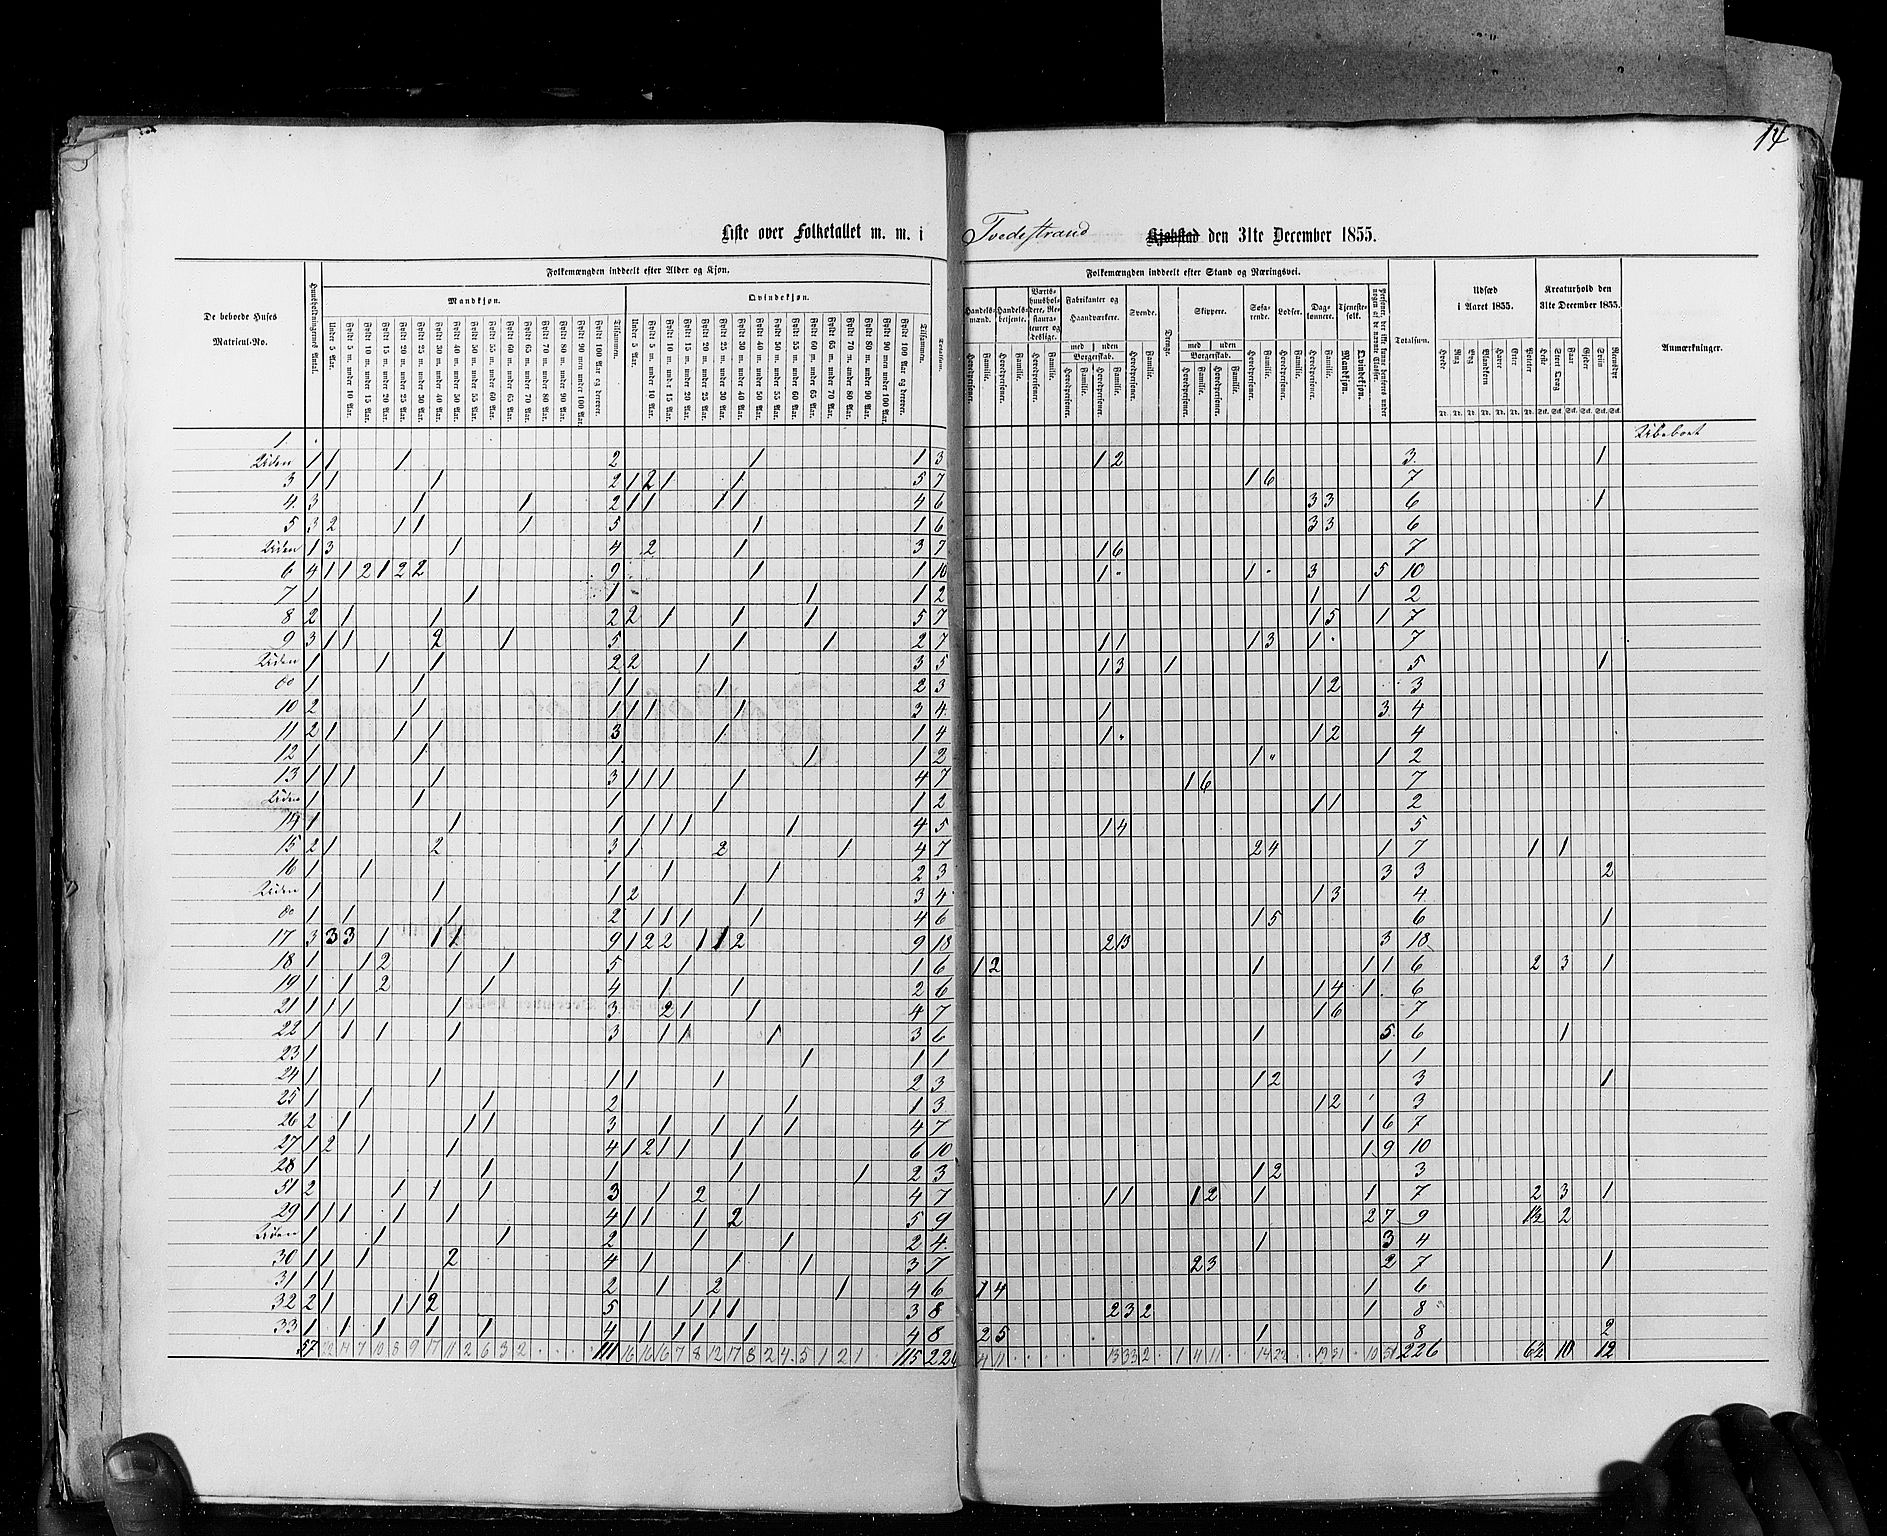 14
Liste over Folketallet m. m. i Tvedestrand Kjøbstad den 31te December 1855.
De beboede Huses Matricul-No.
Huusholdningernes Antal.
Folkemængden inddeelt efter Alder og Kjøn.
Mandkjøn. Qvindekjøn.
Under 5 Aar. Fyldt 5 m. under 10 Aar. Fyldt 10 m. under 15 Aar. Fyldt 15 m. under 20 Aar. Fyldt 20 m. under 25 Aar. Fyldt 25 m. under 30 Aar. Fyldt 30 m. under 40 Aar. Fyldt 40 m. under 50 Aar. Fyldt 50 m. under 55 Aar. Fyldt 55 m. under 60 Aar. Fyldt 60 m. under 65 Aar. Fyldt 65 m. under 70 Aar. Fyldt 70 m. under 80 Aar. Fyldt 80 m. under 90 Aar. Fyldt 90 men under 100 Aar. Fyldt 100 Aar og derover. Tilsammen.
Under 5 Aar. Fyldt 5 m. under 10 Aar. Fyldt 10 m. under 15 Aar. Fyldt 15 m. under 20 Aar. Fyldt 20 m. under 25 Aar. Fyldt 25 m. under 30 Aar. Fyldt 30 m. under 40 Aar. Fyldt 40 m. under 50 Aar. Fyldt 50 m. under 55 Aar. Fyldt 55 m. under 60 Aar. Fyldt 60 m. under 65 Aar. Fyldt 65 m. under 70 Aar. Fyldt 70 m. under 80 Aar. Fyldt 80 m. under 90 Aar. Fyldt 90 men under 100 Aar. Fyldt 100 Aar og derover. Tilsammen.
Totalsum.
Folkemængden inddeelt efter Stand og Næringsvei.
Handelsmænd. Handelsbetjente. Værtshuusholdere, Restaurateurer og deslige. Fabrikanter og Haandværkere. Svende. Drenge. Skippere. Søfarende. Lodser. Dagleiere. Tjenestefolk.
med uden Borgerskab. med uden Borgerskab.
Hovedpersoner. Familie. Mandkjøn. Qvindekjøn.
Totalsum.
Udsæd i Aaret 1855.
Hvede Rug Byg Blandkorn Havre Erter Poteter
Kreaturhold den 31te December 1855.
Heste Stort Qvæg Faar Gjeder Sviin Reensdyr
Anmærkninger.
1. Ubeboet
Uden 1 1 1 2 1 1 3 1 2 3. 1
3 1 1 1 2 1 2 1 1 5 7 1 6 7
4. 3 1 1 2 1 1 1 1 4 6 3 3 6 1
5 3 2 1 1 1 5 1 1 6 3 3 6
Uden 1 3 1 4 2 1 3 7 1 6 7
6 4 1 1 2 1 2 2 9 1 1 10 1 " 1 " 3 5 10
7 1 1 1 1 1 2 1 1 2
8 2 1 1 2 2 1 1 1 5 7 1 5 1 7
9 3 1 1 2 1 5 1 1 2 7 1 1 1 3 1 " 7
Uden 1 1 1 2 2 1 3 5 1 3 1 5 1
do 1 1 1 1 1 2 3 1 2 3
10 2 1 1 1 1 1 3 4. 1 3 4
11 2 1 1 1 3 1 1 4 1 " 1 2 4
12 1 1 1. 1 1 2 1 " 1 2
13 1 1 1 1 3 1 1 1 1 4 7 1 6 7
Uden 1 1 1 1 1 2 1 1 2
14 1 1 1 1 1 1 1 4 5 1 4 5
15 2 1 2 3 1 2 1 4 7 2 4 1 7 1 1
16 1 1 1 1 1 2 3 3 3 2
Uden 1 1 1 2 1 3 4 1 3 4
do 1 1 1 2 1 1 1 1 4 6 1 5 6 1
17 3 3 3 1 1 1 9 1 2 2 1 1 2 9 18 2 13 3 18
18 1 1 2 1 1 5 1 1 6 1 2 1 1 1 6 2 3 1
19 1 1 2 1 4 1 1 2 6 1 4 1 6
21 1 1 1 1 3 2 1 1 4 7 1 6 7
22 1 1 1 1 3 1 1 1 3 6 1 5 6 1
23 1 1 1 1 1 1
24 1 1 1 1 1 2 3 1 2 3 1
25 1 1 1 2 1 1 3 1 2 3
26 2 1 1 1 3 1 1 1 1 4 7 1 6 7
27 1 2 1 1 4 1 2 1 1 1 6 10 1 9 10
28 1 1 1 1 1 2 3 1 2 3
51 2 1 1 1 3 1 2 1 4 7 1 1 1 2 1 1 7 2 3 1
29 1 1 1 1 1 4 1 1 1 2 5 9 2 7 9 1½ 2
Uden 1 1 1 2 1 1 2 4. 1 3 4
30 1 1 1 2 4 1 1 1 3 7 2 3 2 7 1
31 1 1 1 2 1 2 1 4 6 1 4 1 6
32 2 1 1 1 2 5 1 1 1 3 8 2 3 2 1 8
33 1 1 1 1 1 4 1 1 1 1 4 8 2 5 1 8 2
57 22 14 7 10 8 9 17 11 2 6 3 2 111 16 16 16 7 8 12 17 8 2 4 5 1 2 1 115 226 4 11 13 33 2 1 4 11 14 22 19 31 10 51 226 6½ 10 12